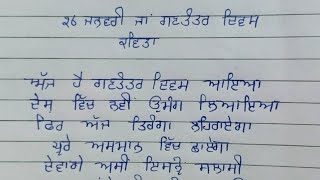 26 ਜਨਵਰੀ ਜਾਂ ਗਣਤੰਤਰ ਦਿਵਸ
ਕਵਿਤਾ
ਅੱਜ ਹੈ ਗਣਤੰਤਰ ਦਿਵਸ ਆਇਆ
ਦੇਸ ਵਿੱਚ ਨਵੀਂ ਉਮੰਗ ਲਿਆਇਆ
ਫਿਰ ਅੱਜ ਤਿਰੰਗਾ ਲਹਿਰਾਏਗਾ
ਪੂਰੇ ਅਸਮਾਨ ਵਿੱਚ ਛਾਏਗਾ
ਦੇਵਾਂਗੇ ਅਸੀਂ ਇਸਨੂੰ ਸਲਾਮੀ